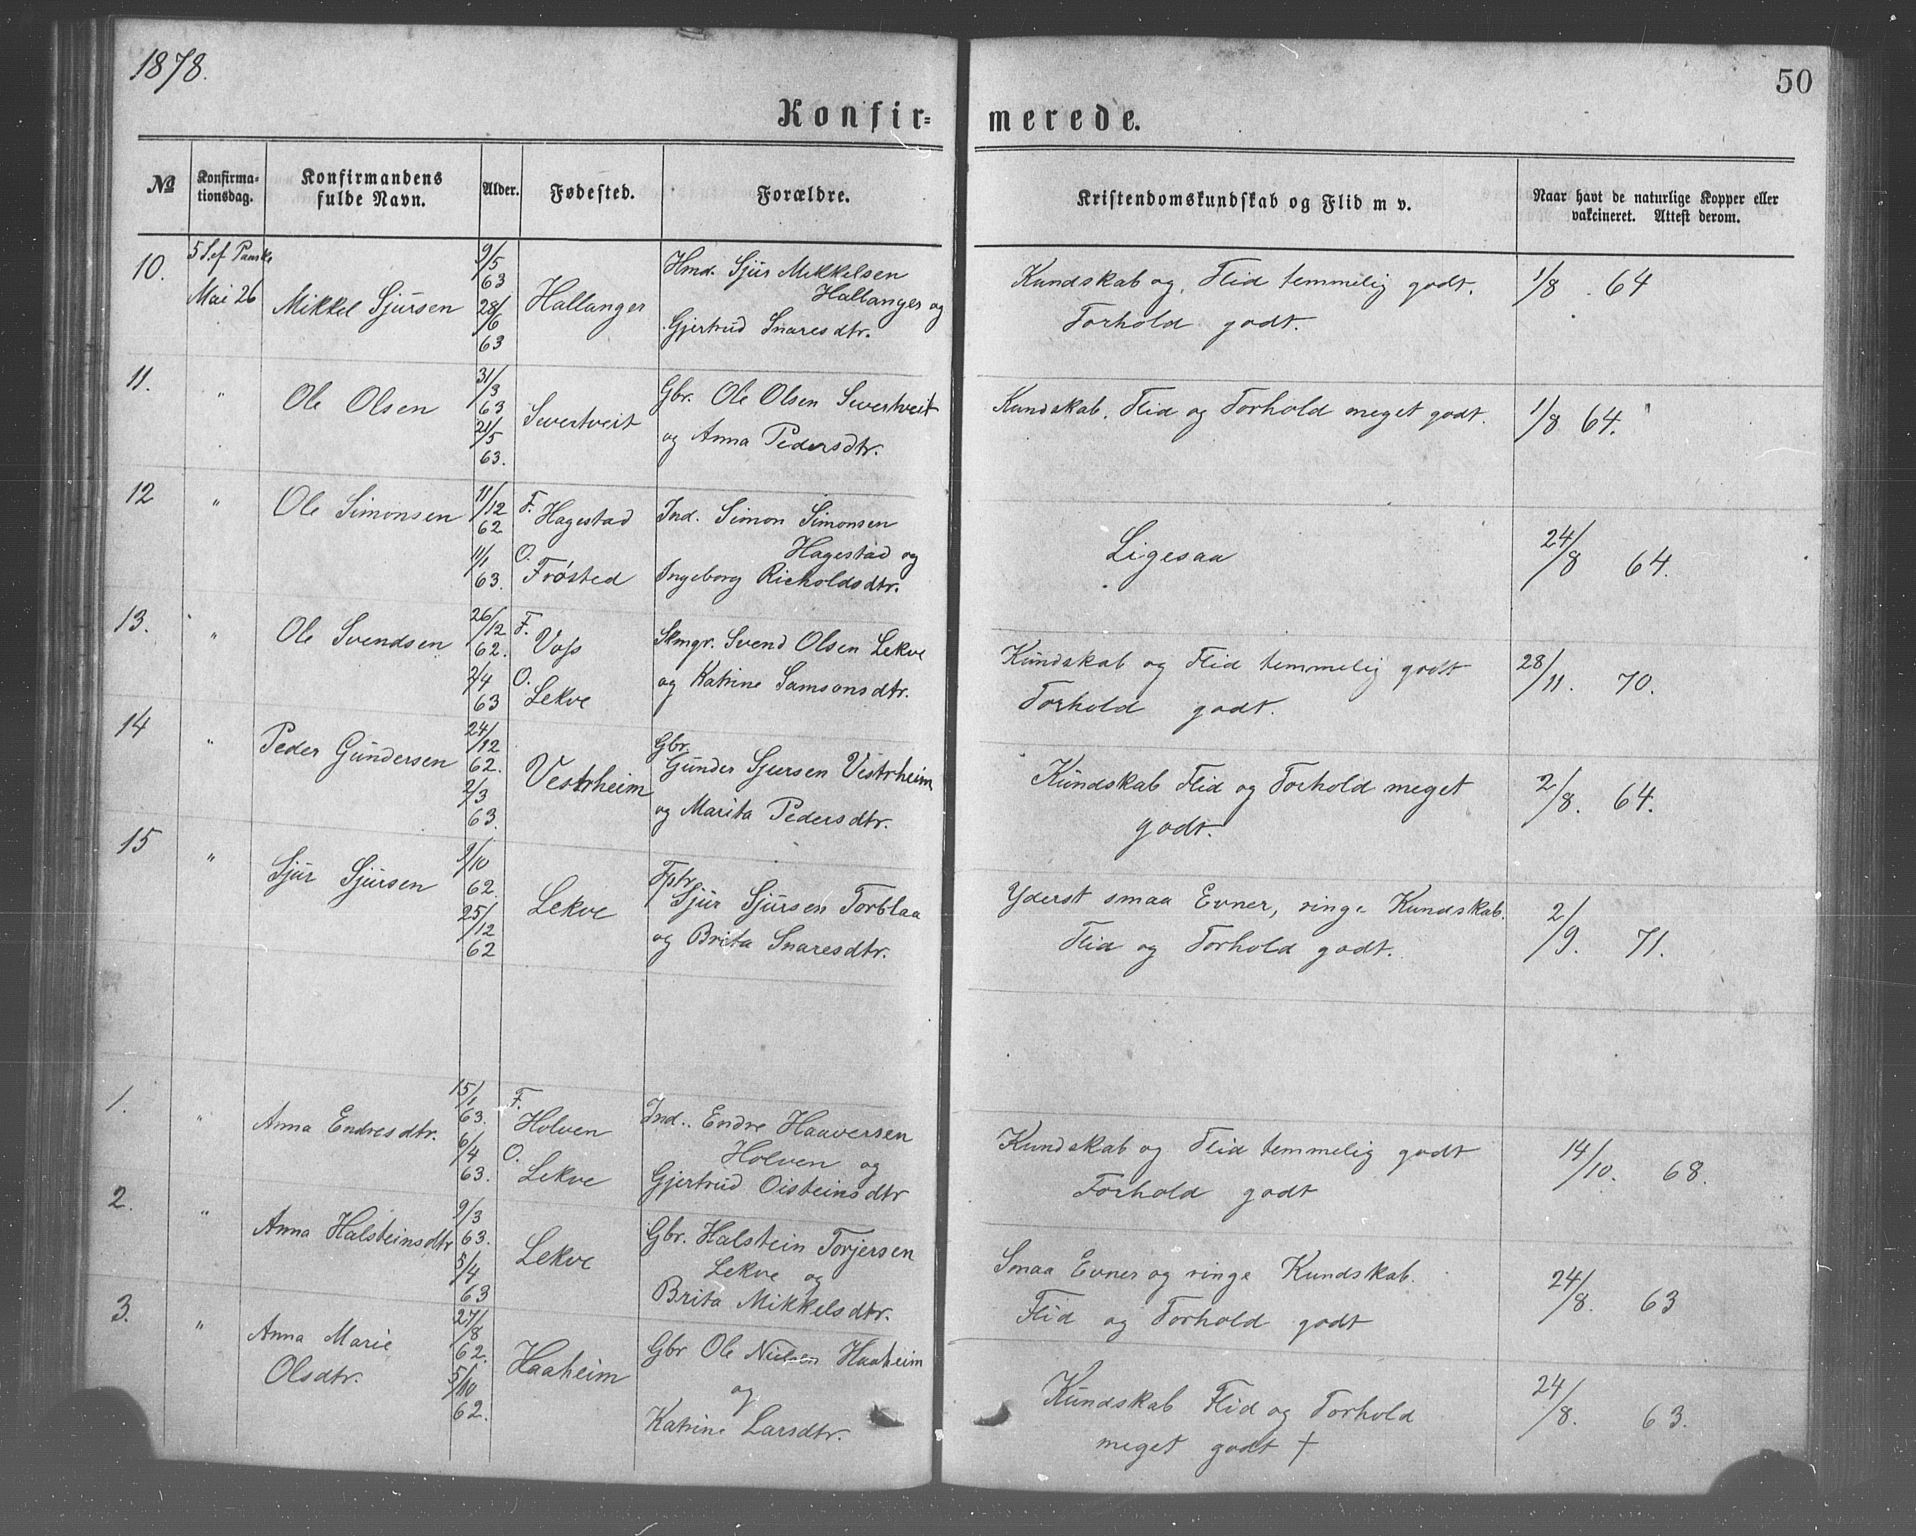 1878.
50
Konfir= merede.
№ Konfirma- tionsdag. Konfirmandens fulde Navn. Alder. Fødested. Forældre. Kristendomskundskab og Flid m v. Naar havt de naturlige Kopper eller vakcineret. Attest derom.
10. 5 S. ef Paaske 9/5 Hmd. Sjur Mikkelsen
Mai 26 63 Hallanger og Kundskab og Flid temmelig godt. 1/8 . 64
Mikkel Sjursen 28/6 Hallanger Gjertrud Snaresdtr. Forhold godt.
63
11. " 31/3 Gbr. Ole Olsen Sevestveit
Ole Olsen 63 Sevestveit og Anna Pedersdtr. Kundskab, Flid og Forhold meget godt. 1/8 64.
21/5
63.
12 " Ole Simonsen 11/12 F. Hagestad Ind. Simon Simonsen
62 Hagestad og Ligesaa 24/8 64.
11/1 O. Frøsted Ingeborg Richoldsdtr.
63.
13. " Ole Svendsen 26/12 F. Voss Skmgr. Svend Olsen Lekve Kundskab og Flid temmelig godt 28/11. 70.
62. og Katrine Samsonsdtr. Forhold godt.
2/4 O. Lekve
63
14 " Peder Gundersen 24/12 Gbr.
62. Vestrheim Gunder Sjursen Vestrheim Kundskab Flid og Forhold meget 2/8. 64.
2/3 og Marita Pedersdtr. godt.
63.
15 " Sjur Sjursen 9/10 Fptr.
62 Lekve Sjur Sjursen Torblaa Yderst smaa Evner, ringe Kundskab. 2/9. 71.
25/12 og Brita Snaresdtr. Flid og Forhold godt.
62
1. " 15/1 F.
Anna Endresdtr. 63. Holven Ind.. Endre Haaversen Kundskab og Flid temmelig godt 14/10. 68.
6/4 O. Holven og Forhold godt
63. Lekve Gjertrud Oisteinsdtr
2. " Anna Halsteinsdtr 9/3 Gbr. Halstein Torjersen
63. Lekve Lekve og Smaa Evner og ringe Kundskab. 24/8. 63
5/4 Brita Mikkelsdtr. Flid og Forhold godt
63
3. " Anna Marie 27/8 Gbr Ole Nielsen Haaheim
Olsdtr. 62. Haaheim og Kundskab Flid og Forhold 24/8. 63.
5/10 Katrine Larsdtr. meget godt †
62.